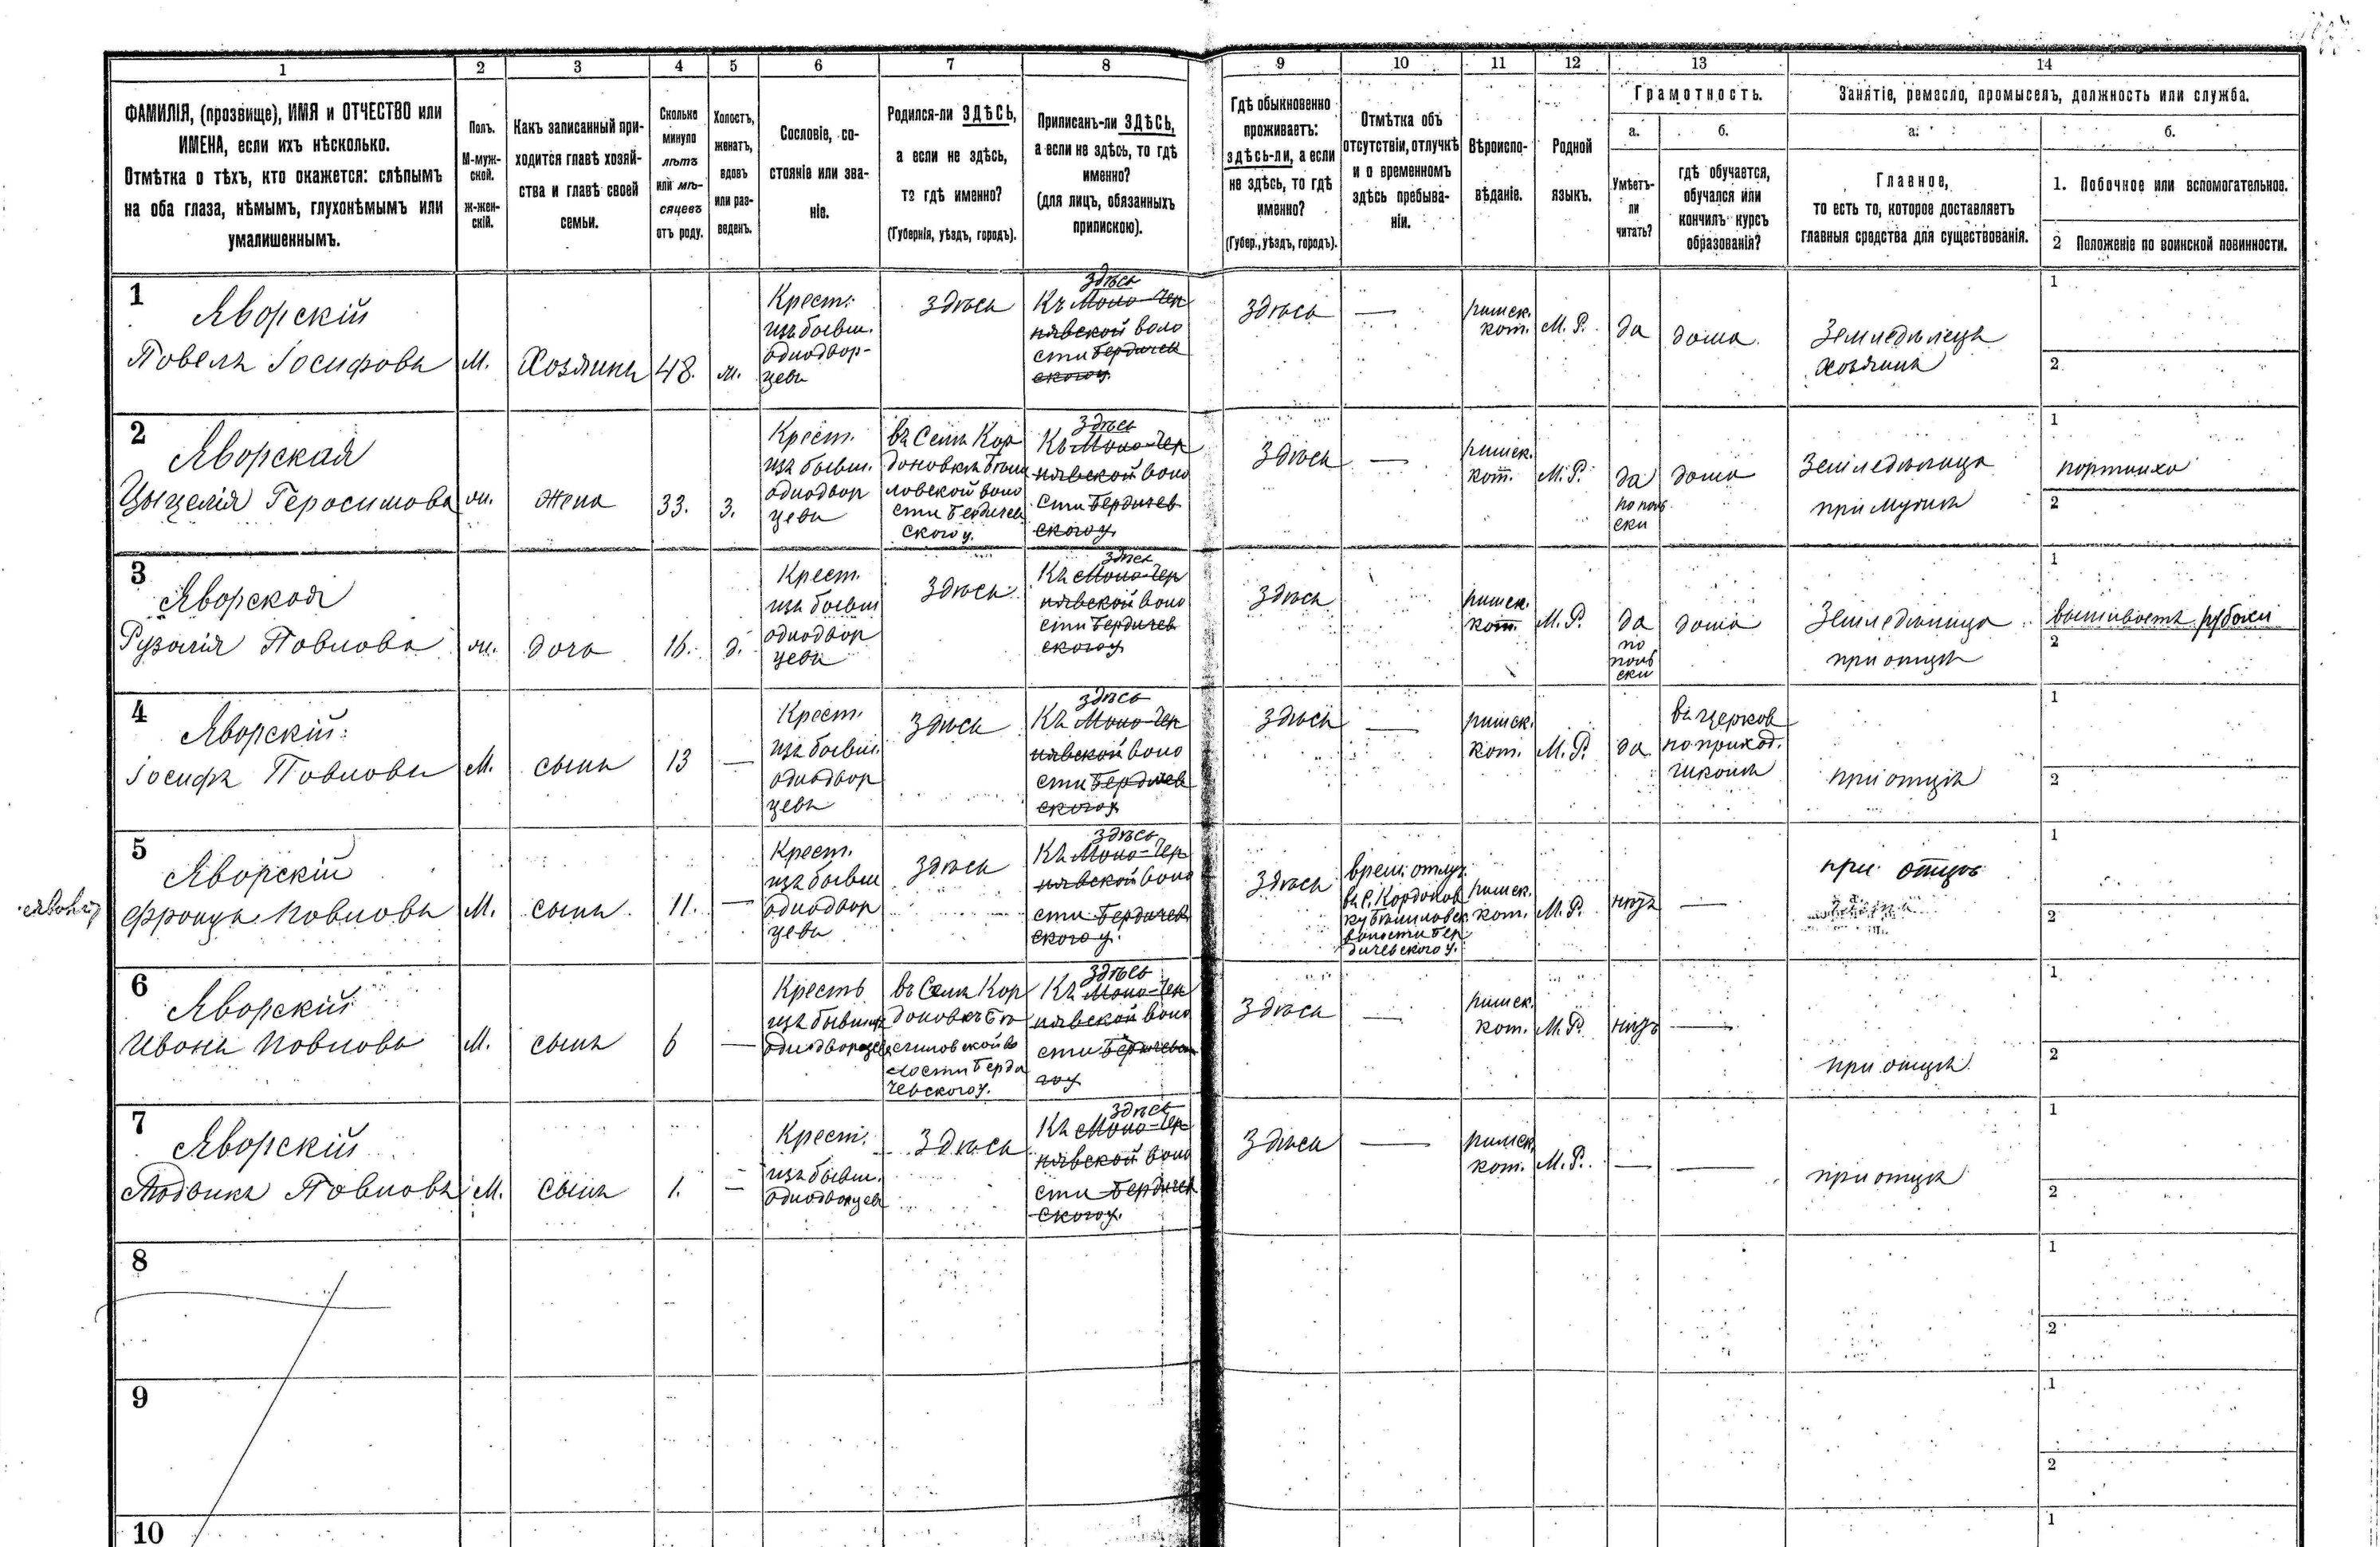 1
2
3
4
5
6
7
8
9
10
11
12
13
14
ФАМИЛІЯ, (прозвище), ИМЯ и ОТЧЕСТВО или
ИМЕНА, если ихъ нѣсколько.
Отмѣтка о тѣхъ, кто окажется: слѣпымъ
на оба глаза, нѣмымъ, глухонѣмымъ или
умалишеннымъ.
Полъ.
М-муж-
ской.
ж-жен-
скій.
Какъ записанный при-
ходится главѣ хозяй-
ства и главѣ своей
семьи.
Сколько
минуло
лѣтъ
или мѣ-
сяцевъ
отъ роду.
Холостъ,
женатъ,
вдовъ
или раз-
веденъ.
Сословіе, со-
стояніе или зва-
ніе.
Родился-ли ЗДѢСЬ,
а если не здѣсь,
то гдѣ именно?
(Губернія, уѣздъ, городъ).
Приписанъ-ли ЗДѢСЬ,
а если не здѣсь, то гдѣ
именно?
(для лицъ, обязанныхъ
припискою).
Гдѣ обыкновенно
проживаетъ:
здѣсь-ли, а если
не здѣсь, то гдѣ
именно?
(Губер., уѣздъ, городъ).
Отмѣтка объ
отсутствіи, отлучкѣ
и о временномъ
здѣсь пребыва-
ніи.
Вѣроиспо-
вѣданіе.
Родной
языкъ.
Грамотность.
а.
б.
Умѣетъ-
ли
читать?
гдѣ обучается,
обучался или
кончилъ курсъ
образованія?
Занятіе, ремесло, промыселъ, должность или служба.
а.
б.
Главное,
то есть то, которое доставляетъ
главныя средства для существованія.
1. Побочное или вспомогательное.
2 Положеніе по воинской повинности.
1
Яворскій
Повелъ Іосифовъ
М.
Хозяинъ
48.
ж.
Крест.
изъ бывш.
однодвор-
цевъ
здѣсь
здѣсь
Къ Мало-Чер
нявской воло
сти Бердичев
ского у.
здѣсь
—
римск.
кат.
М. Р.
да
дома.
Земледѣлецъ
хозяинъ
1
2
2
Яворская
Цыцелія Геросимова
ж.
жена
33.
З.
Крест.
изъ бывш.
однодвор
цевъ
въ Селѣ Кор
доновкѣ Бѣши
ловской воло
сти Бердичев
ского у.
здѣсь
Къ Мало-Чер
нявской воло
сти Бердичев
ского у.
Здѣсь
—
римск.
кат.
М. Р.
да
по поль
ски
дома
Земледѣлица
при мужѣ
1
портниха
2
3
Яворская
Рузалія Повлова
ж.
дочь
16.
д.
Крест.
изъ бывш
однодвор
цевъ
Здѣсь
здѣсь
Къ Мало-Чер
нявской воло
сти Бердичев
ского у
Здѣсь
римск.
кат.
М. Р.
да
по
поль
ски
дома
Земледѣлица
при отцѣ
1
вышиваетъ рубахи
2
4
Яворскій
Іосифъ Повловъ
М.
сынъ
13
—
Крест.
изъ бывш.
однодвор
цевъ
Здѣсь
здѣсь
Къ Мало-Чер
нявской воло
сти Бердичев
ского у
Здѣсь
—
римск.
кат.
М. Р.
да
въ церков
но приход.
школѣ
при отцѣ
1
2
5
Яворскій
Францъ Повловъ
М.
сынъ.
11.
—
Крест.
изъ бывш
однодвор
цевъ
Здѣсь
здѣсь
Къ Мало-Чер
нявской воло
сти Бердичев
ского у.
Здѣсь
врем. отлуч.
въ С. Кордонов
ку Бѣшиловск.
волости Бер
дичевского у.
римск.
кат.
М. Р.
нѣтъ
—
при отцѣ
1
2
6
Яворскій
Иванъ Повловъ
М.
сынъ
6
—
Крестъ
изъ бывших
однодворцевъ
въ Селѣ Кор
доновкѣ Бѣ
шиловской во
лости Берди
чевского у.
здѣсь
Къ Мало-Чер
нявской воло
сти Бердичевск
го у
Здѣсь
—
римск.
кат.
М. Р.
нѣтъ
—
при отцѣ.
1
2
7
Яворскій
Людвикъ Повловъ
М.
сынъ
1.
—
Крест.
изъ бывш.
однодворцевъ
Здѣсь
здѣсь
Къ Мало-Чер
нявской воло
сти Бердичев
ского у.
Здѣсь
—
римск.
кат.
М. Р.
—
—
при отцѣ
1
2
8
1
2
9
1
2
10
1